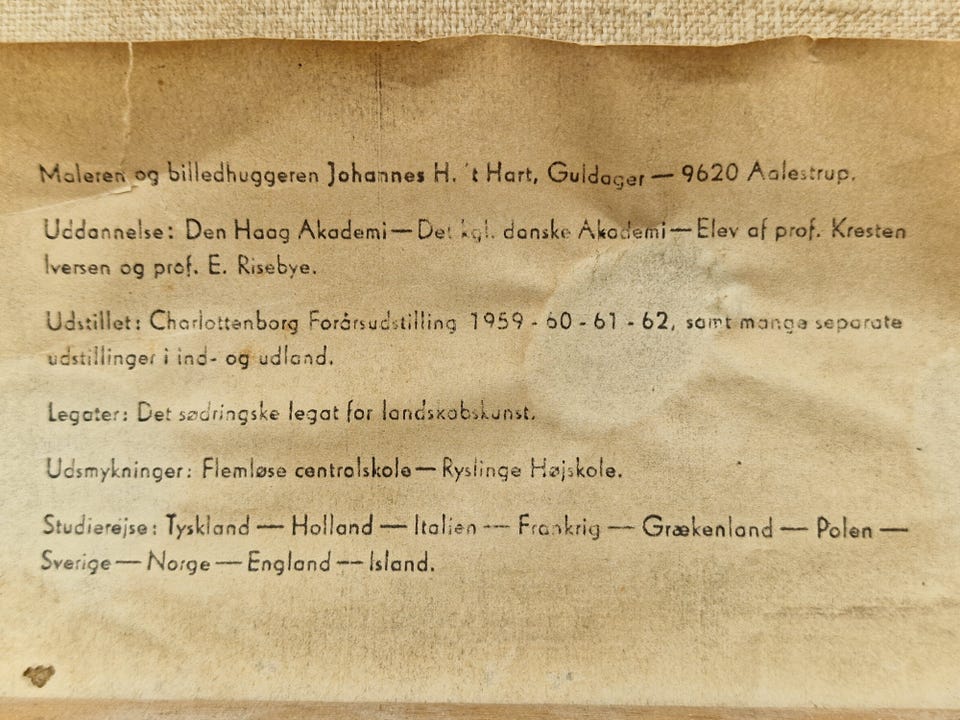 Maleren og billedhuggeren Johannes H. 't Hart, Guldager — 9620 Aalestrup.
Uddannelse: Den Haag Akademi — Det kgl. danske Akademi — Elev af prof. Kresten
Iversen og prof. E. Risebye.
Udstillet: Charlottenborg Forårsudstilling 1959 - 60 - 61 - 62, samt mange separate
udstillinger i ind- og udland.
Legater: Det sødringske legat for landskabskunst.
Udsmykninger: Flemløse centralskole — Ryslinge Højskole.
Studierejse: Tyskland — Holland — Italien — Frankrig — Grækenland — Polen —
Sverige — Norge — England — Island.